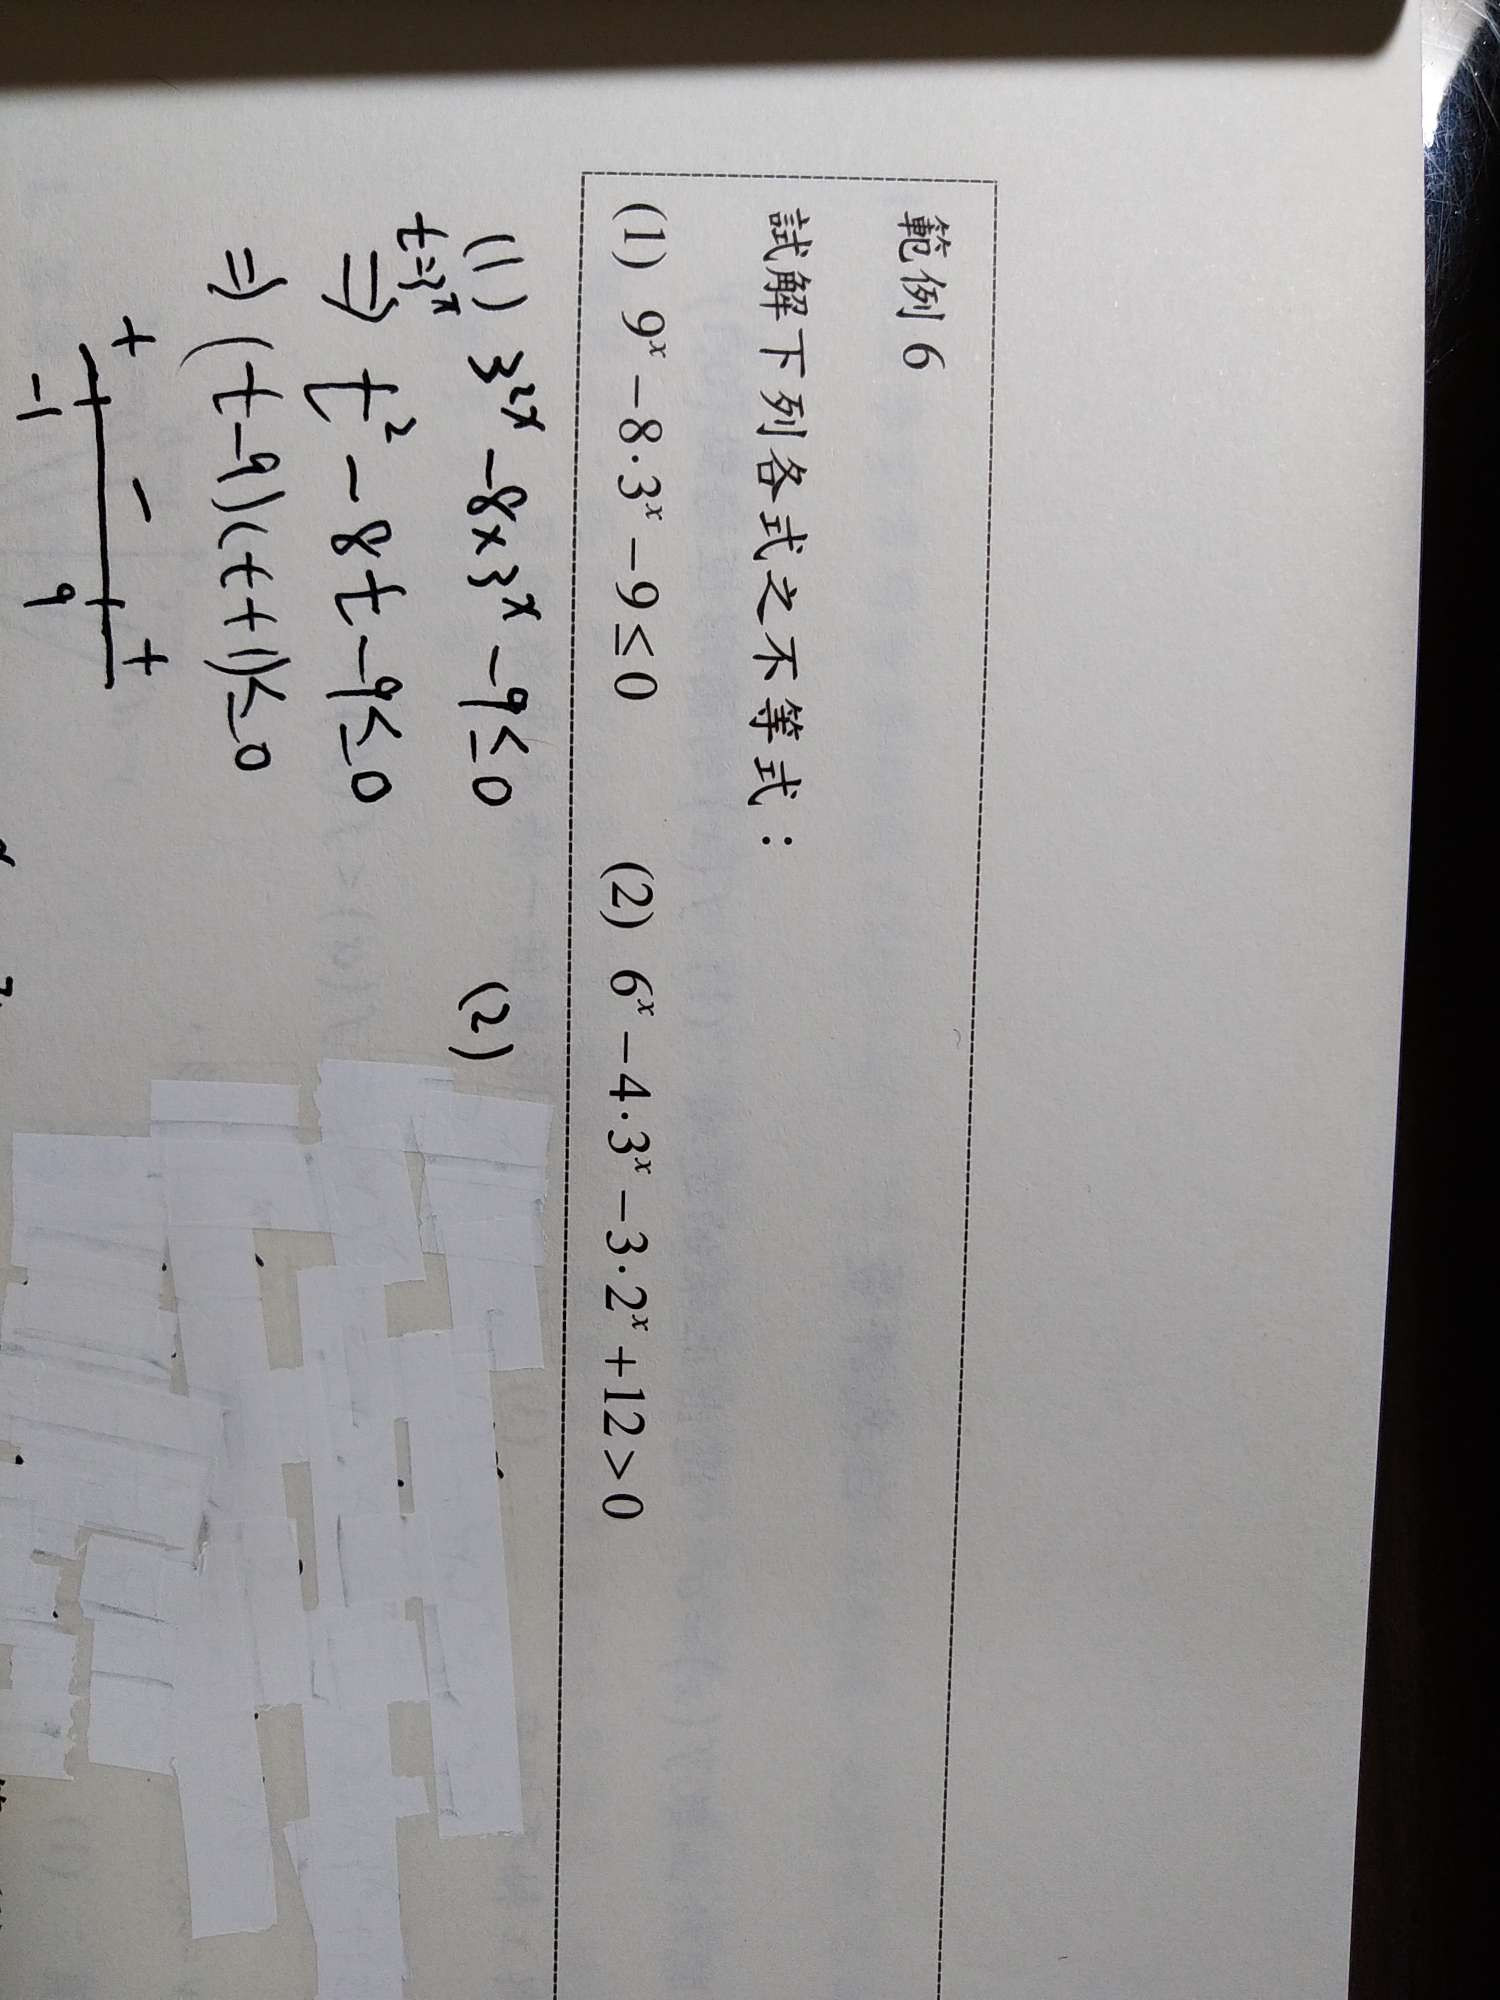 範例 6
試解下列各式之不等式：
(1) 9ˣ − 8·3ˣ − 9 ≤ 0 (2) 6ˣ − 4·3ˣ − 3·2ˣ + 12 > 0
(1) 3²ˣ − 8×3ˣ − 9 ≤ 0 (2)
t=3ˣ
⇒ t² − 8t − 9 ≤ 0
⇒ (t−9)(t+1) ≤ 0
+ − +
−1 9